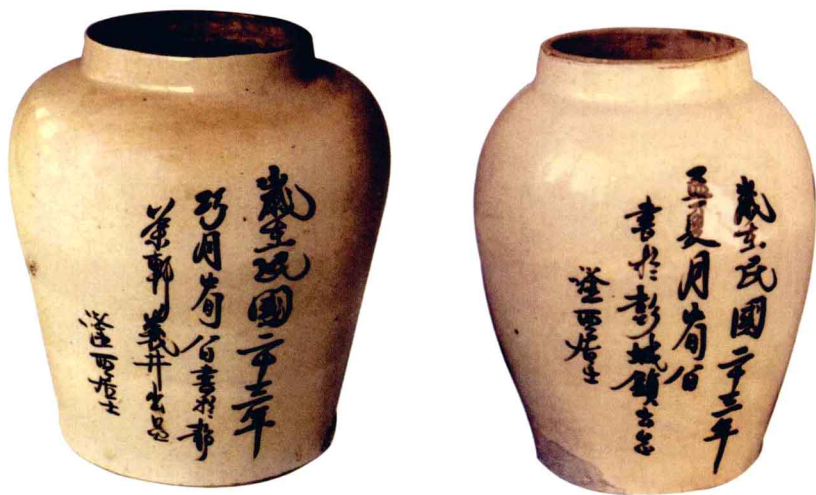 歲在民國二十三年
巧月旬書於
義井出品
滏西居士
歲在民國二十三年
孟夏月旬
書於彭城鎮出品
滏西居士